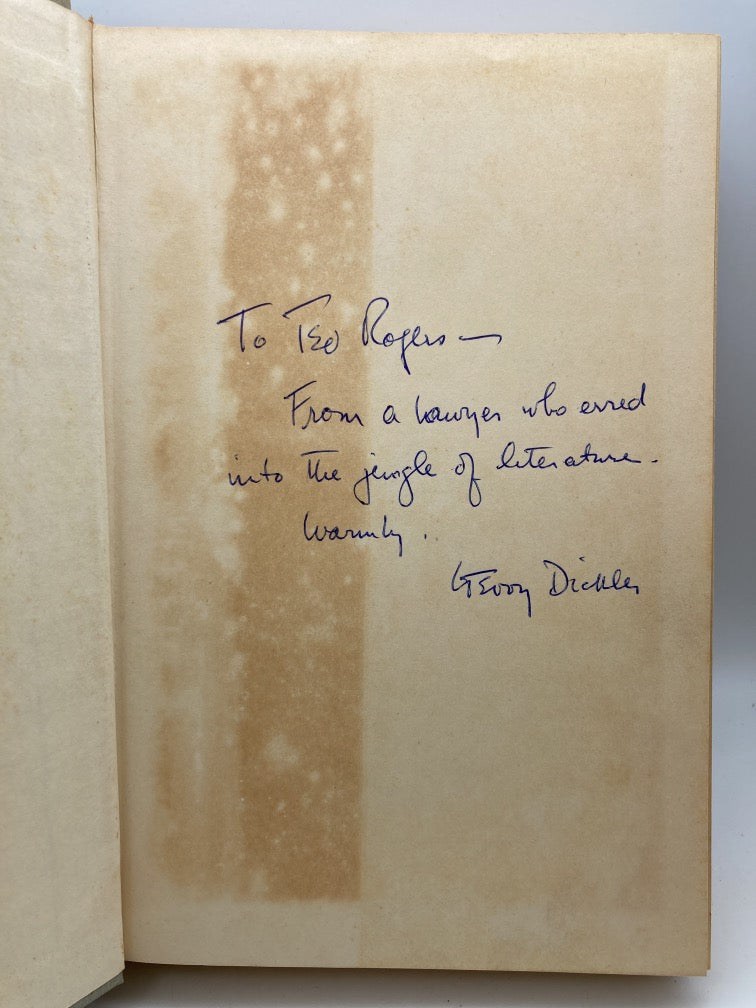 To Ted Rogers —
From a lawyer who erred
into the jungle of literature.
Warmly.
Gerry Dickler